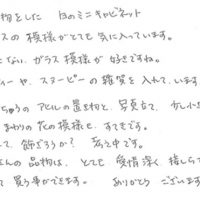 物をした 白のミニキャビネット
スの模様がとても気に入っています。
にない、ガラス模様が好きですね。
ィーや、スヌーピーの雑貨を入れています
ちゅうのアヒルの置物と、写真立て、
まわりの花の模様も、すてきです。
て、飾ろうか? 考え中です。
さんの品物は、とても愛情深く、接しら
て買う事ができます。 ありがとうございます